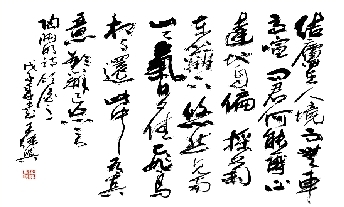 结廬在人境而無車
馬喧問君何能爾心
遠地自偏採菊
東籬下悠然見南
山山氣日夕佳飛鳥
相與還此中有真
意欲辨已忘言
陶淵明詩飲酒
戊子